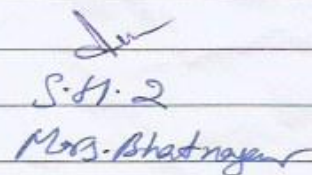 S.H.2
Mrs. Bhatnagar